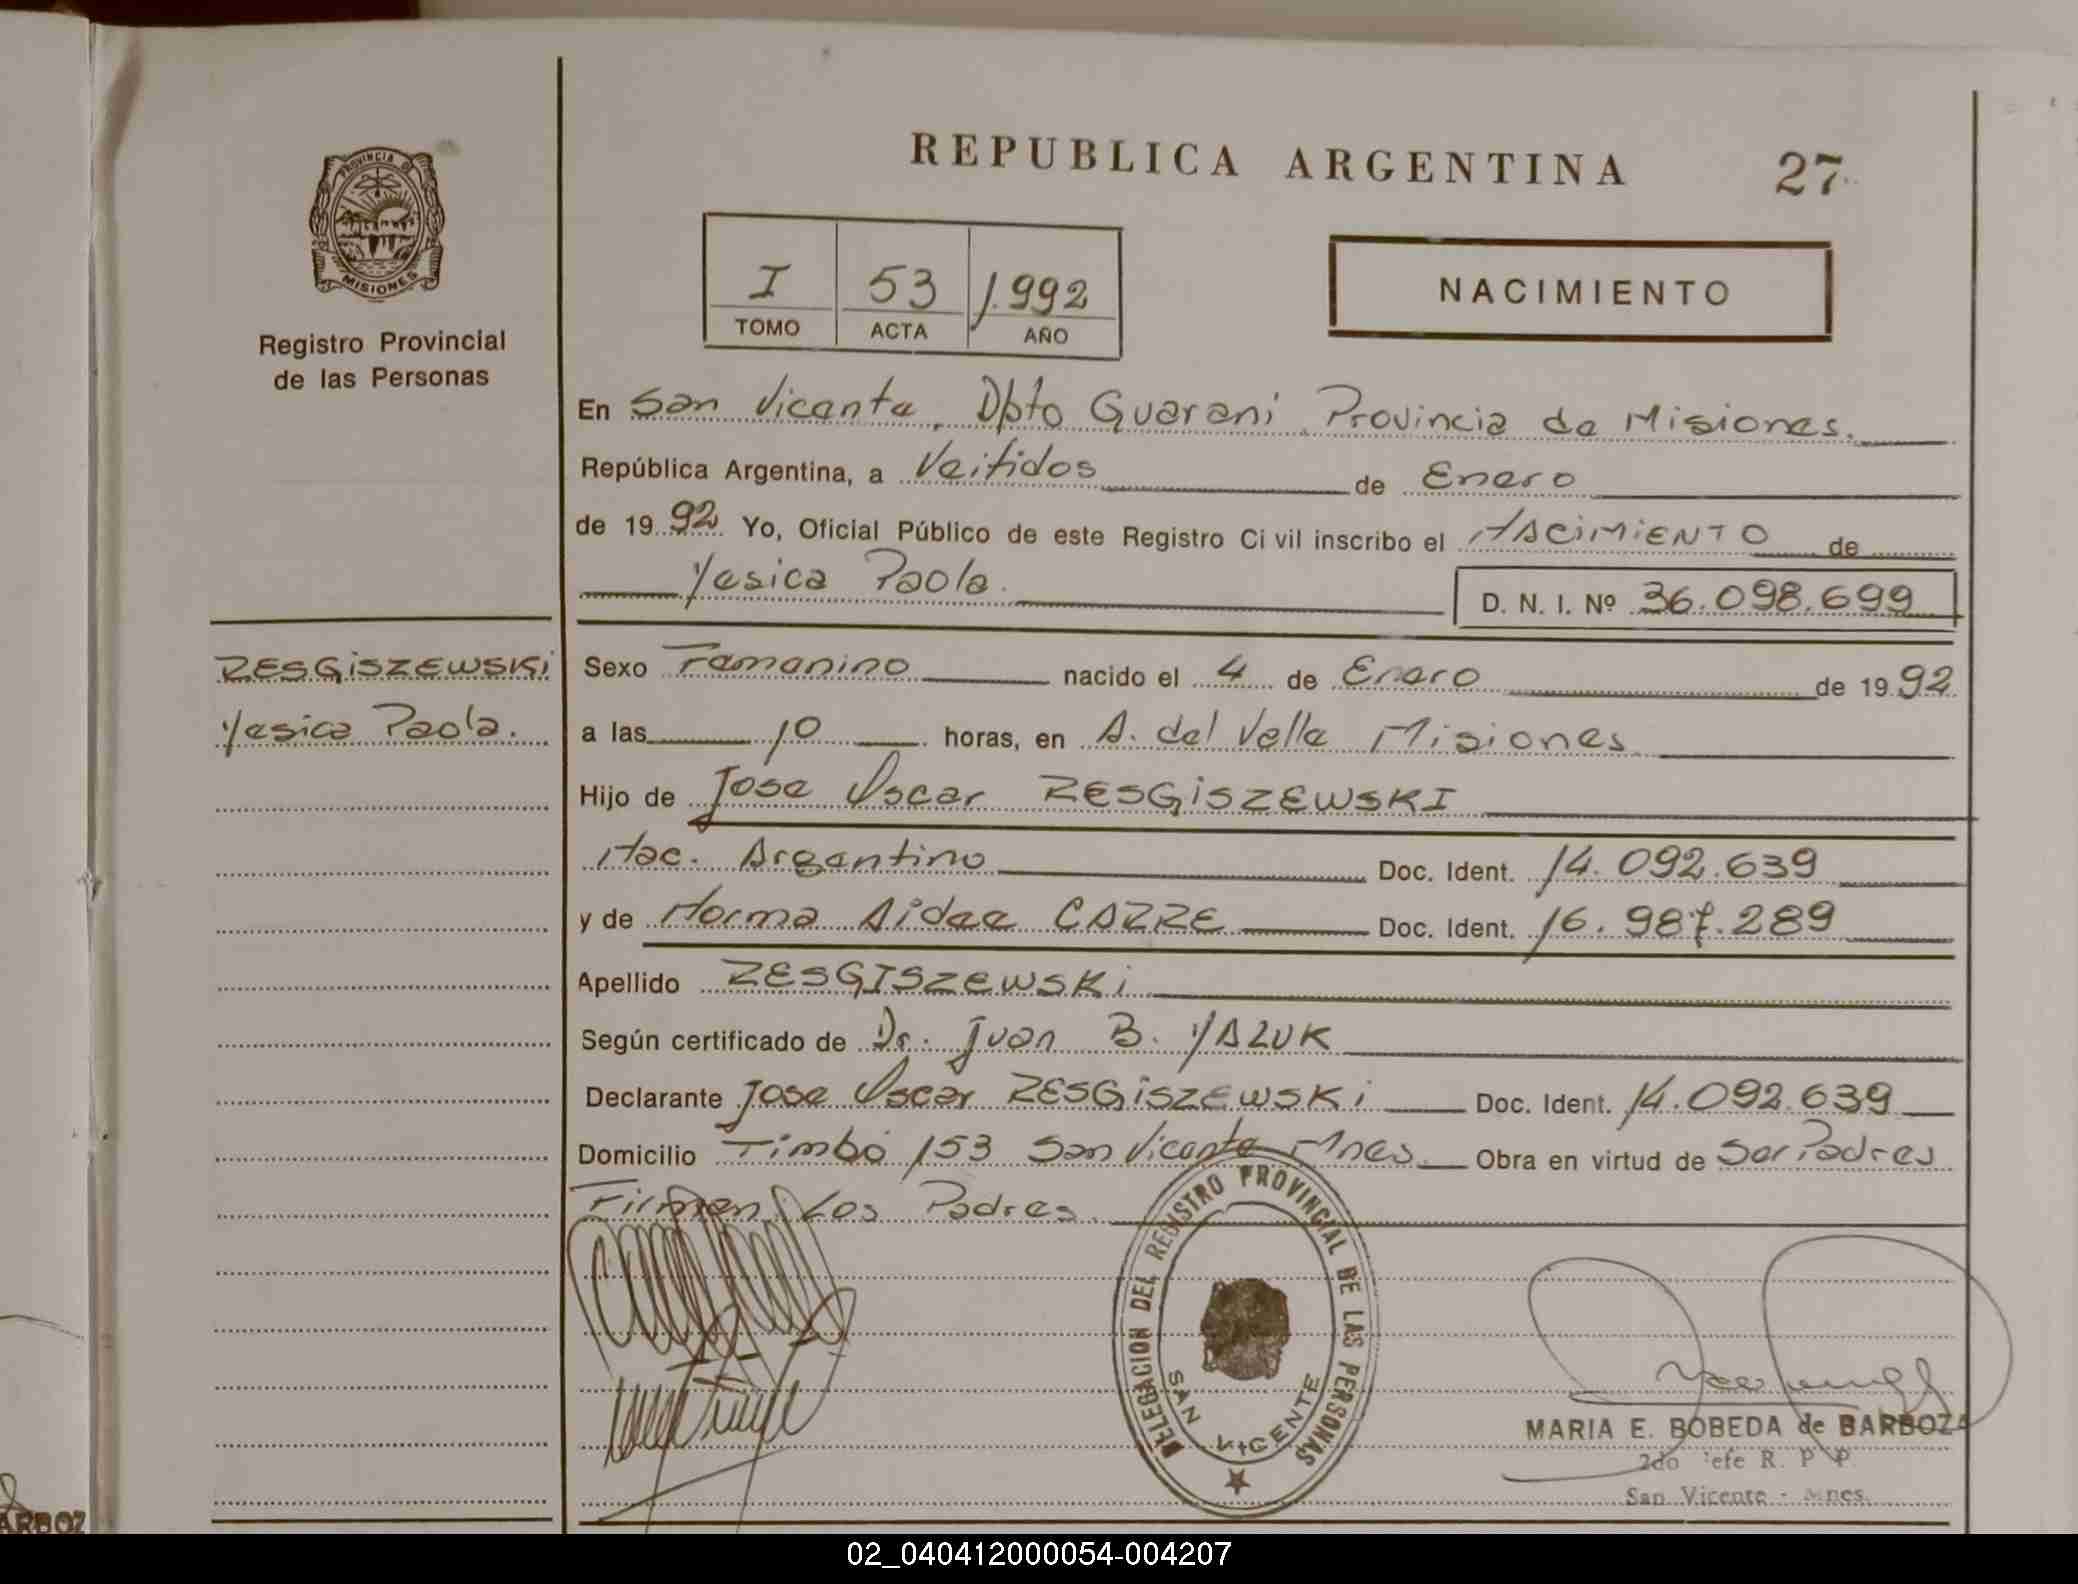 REPUBLICA ARGENTINA
27
PROVINCIA DE
MISIONES
Registro Provincial
de las Personas
I 53 1.992
TOMO ACTA AÑO
NACIMIENTO
En San Vicente, Dpto Guarani Provincia de Misiones.
República Argentina, a Veitidos de Enero
de 19 92 Yo, Oficial Público de este Registro Ci vil inscribo el NACIMIENTO de
Yesica Paola.
D. N. I. Nº 36.098.699
RESGISZEWSKI
Yesica Paola.
Sexo Femenino nacido el 4 de Enero de 19 92
a las 10 horas, en A. del Valle Misiones
Hijo de Jose Oscar RESGISZEWSKI
Nac. Argentino Doc. Ident. 14.092.639
y de Norma Aidee CARRE Doc. Ident. 16.987.289
Apellido RESGISZEWSKI
Según certificado de Dr. Juan B. YALUK
Declarante Jose Oscar RESGISZEWSKI Doc. Ident. 14.092.639
Domicilio Timbó 153 San Vicente Mnes. Obra en virtud de Ser Padres
Firman Los Padres.
DELEGACION DEL REGISTRO PROVINCIAL DE LAS PERSONAS
SAN VICENTE
MARIA E. BOBEDA de BARBOZA
2do Jefe R. P. P.
San Vicente - Mnes.
ARBOZ
02_040412000054-004207